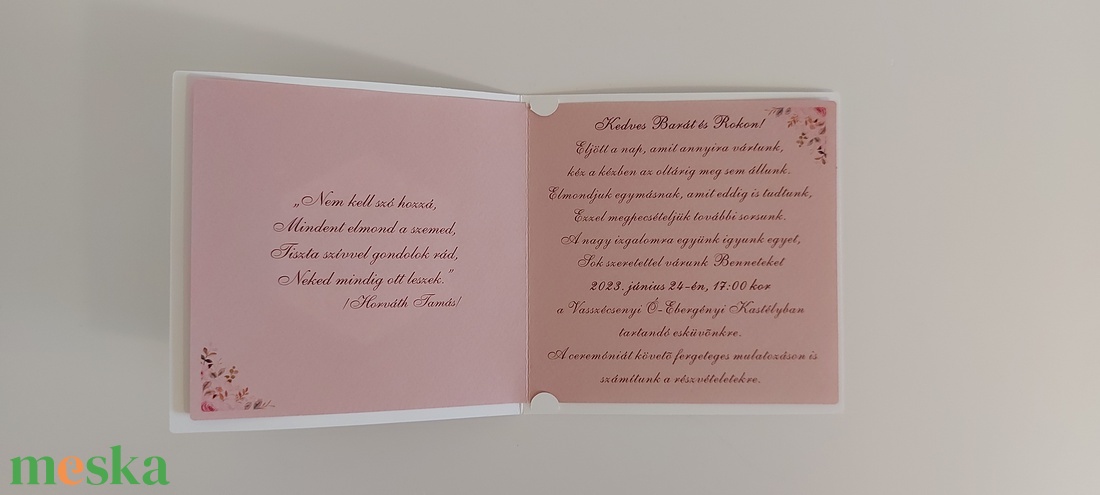 „Nem kell szó hozzá,
Mindent elmond a szemed,
Tiszta szívvel gondolok rád,
Neked mindig ott leszek.”
/Horváth Tamás/
Kedves Barát és Rokon!
Eljött a nap, amit annyira vártunk,
kéz a kézben az oltárig meg sem állunk.
Elmondjuk egymásnak, amit eddig is tudtunk,
Ezzel megpecsételjük további sorsunk.
A nagy izgalomra együnk igyunk egyet,
Sok szeretettel várunk Benneteket
2023. június 24-én, 17:00 kor
a Vasszécsenyi Ó-Ebergényi Kastélyban
tartandó esküvõnkre.
A ceremóniát követõ fergeteges mulatozáson is
számítunk a részvételetekre.
meska